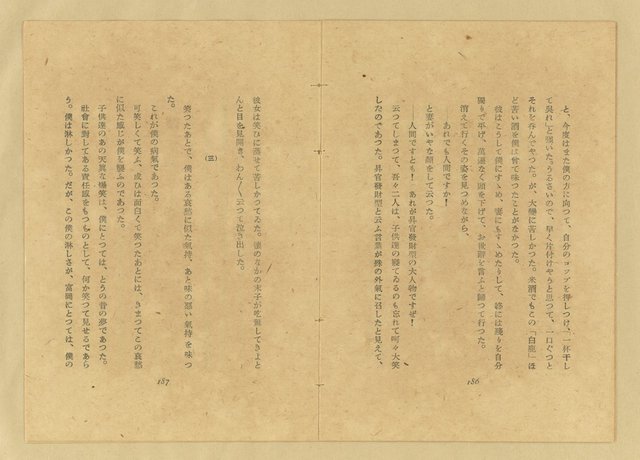 と、今度はまた僕の方に向つて、自分のコップを押しつけ「一杯干し
て吳れ」と强いた。うるさいので、早く片付けやうと思つて、一口ぐつと
それを呑んでやつた。が、大變に苦しかつた。米酒でもこの「白鹿」ほ
ど苦い酒を僕は曾て味つたことがなかつた。
彼はこうして僕にすゝめ、妻にもすゝめたりして、終には殘りを自分
獨りで平げ、萬遍なく頭を下げて、お世辭を言ふと歸つて行つた。
消えて行くその姿を見つめながら、
――あれでも人間ですか！
と妻がいやな顏をして云つた。
――人間ですとも！　あれが昇官發財型の大人物ですぜ！
云つてしまつて、吾々二人は、子供達の寢てゐるのも忘れて呵々大笑
したのであつた。昇官發財型と云ふ言葉が妹の外氣に召したと見えて、
186
彼女は笑ひに落せて苦しかつてゐた。懷のなかの末子が吃驚してきよと
んと目を見開き、わあん／＼云つて泣き出した。
(三)
笑つたあとで、僕はある哀愁に似た氣持、あと味の惡い氣持を味つ
た。
これが僕の病氣であつた。
可笑しくて笑ふ、或ひは面白くて笑つたあとには、きまつてこの哀愁
に似た感じが僕を襲ふのであつた。
子供達のあの天眞な爆笑は、僕にとつては、とうの昔の夢であつた。
社會に對してある責任感をもつものとして、何か笑つて見せるであら
う。僕は淋しかつた。だが、この僕の淋しさが、富岡にとつては、僕の
187